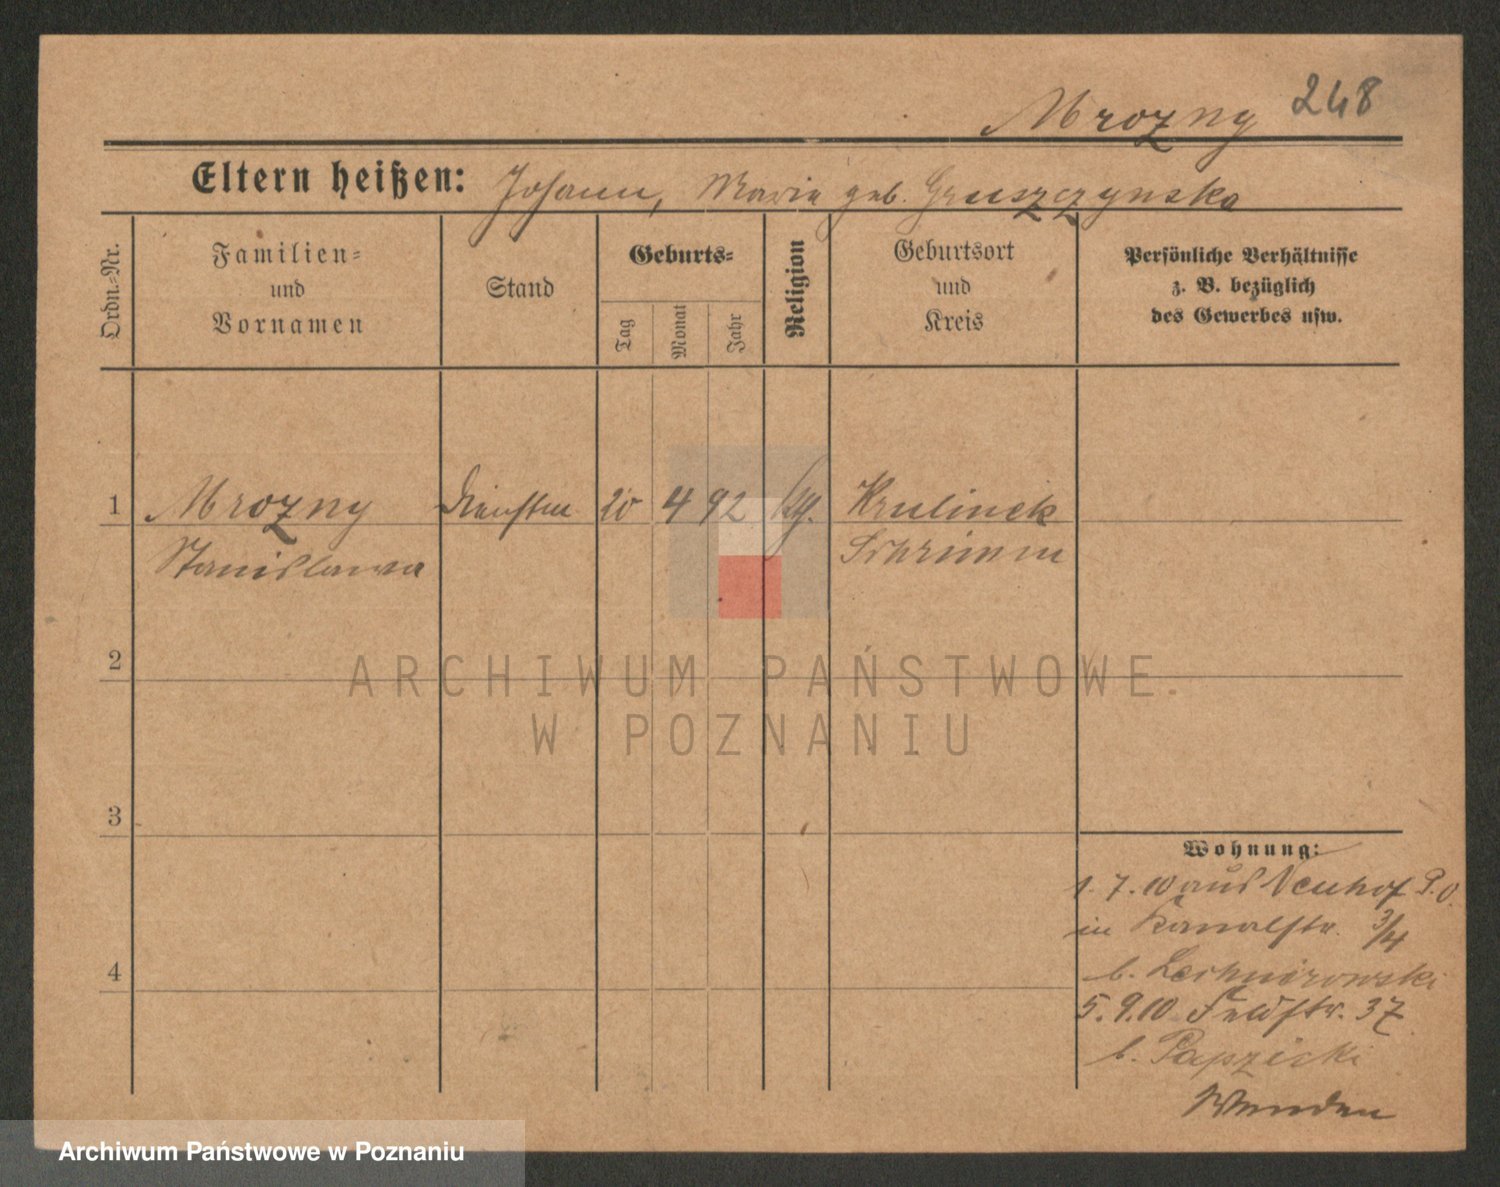 Mrozny 248
Eltern heißen: Johann, Maria geb. Gruszczynska
Ordn.-Nr.
Familien-
und
Vornamen
Stand
Geburts-
Tag
Monat
Jahr
Religion
Geburtsort
und
Kreis
Persönliche Verhältnisse
z. B. bezüglich
des Gewerbes usw.
1 Mrozny 20 4 92 Krulinek
Stanislawa Schrimm
2
3
4
Wohnung:
1. 7. 10 aus Neuhof P.O.
in Kanalstr. 3/4
b.
5. 9. 10 Feldstr. 37
b. Papzicki
Wenden
ARCHIWUM PAŃSTWOWE
W POZNANIU
Archiwum Państwowe w Poznaniu